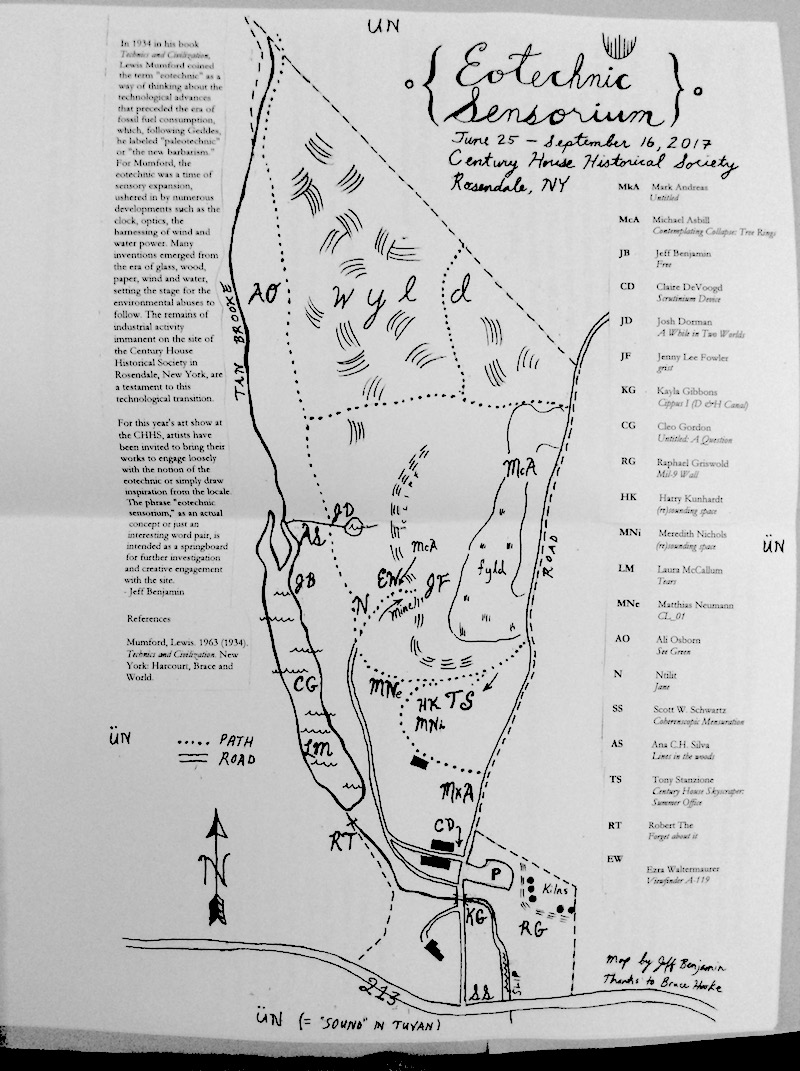 ÜN
In 1934 in his book
Technics and Civilization,
Lewis Mumford coined
the term "eotechnic" as a
way of thinking about the
technological advances
that preceded the era of
fossil fuel consumption,
which, following Geddes,
he labeled "paleotechnic"
or "the new barbarism."
For Mumford, the
eotechnic was a time of
sensory expansion,
ushered in by numerous
developments such as the
clock, optics, the
harnessing of wind and
water power. Many
inventions emerged from
the era of glass, wood,
paper, wind and water,
setting the stage for the
environmental abuses to
follow. The remains of
industrial activity
immanent on the site of
the Century House
Historical Society in
Rosendale, New York, are
a testament to this
technological transition.
For this year's art show at
the CHHS, artists have
been invited to bring their
works to engage loosely
with the notion of the
eotechnic or simply draw
inspiration from the locale.
The phrase "eotechnic
sensorium," as an actual
concept or just an
interesting word pair, is
intended as a springboard
for further investigation
and creative engagement
with the site.
- Jeff Benjamin
References
Mumford, Lewis. 1963 (1934).
Technics and Civilization. New
York: Harcourt, Brace and
World.
{Eotechnic
Sensorium}
June 25 – September 16, 2017
Century House Historical Society
Rosendale, NY
MkA Mark Andreas
Untitled
McA Michael Asbill
Contemplating Collapse: Tree Rings
JB Jeff Benjamin
Free
CD Claire DeVoogd
Scrutinium Device
JD Josh Dorman
A While in Two Worlds
JF Jenny Lee Fowler
grist
KG Kayla Gibbons
Cippus I (D & H Canal)
CG Cleo Gordon
Untitled: A Question
RG Raphael Griswold
Mil-9 Wall
HK Harry Kunhardt
(re)sounding space
MNi Meredith Nichols
(re)sounding space
LM Laura McCallum
Tears
MNe Matthias Neumann
CL_01
AO Ali Osborn
See Green
N Ntilit
Jane
SS Scott W. Schwartz
Coherenscopic Mensuration
AS Ana C.H. Silva
Lines in the woods
TS Tony Stanzione
Century House Skyscraper:
Summer Office
RT Robert The
Forget about it
EW
Ezra Waltermaurer
Viewfinder A-119
ÜN
TAN BROOKE
AO
Wyld
McA
JD
AS
ROAD
McA
fyld
JB
EW
JF
N
Mine
CG
MNe
HK TS
MNi
LM
MkA
RT
CD
P
Kilns
KG
RG
SS
SLIP
213
ÜN
PATH
ROAD
N
Map by Jeff Benjamin
Thanks to Bruce Hooke
ÜN (= "SOUND" IN TUVAN)